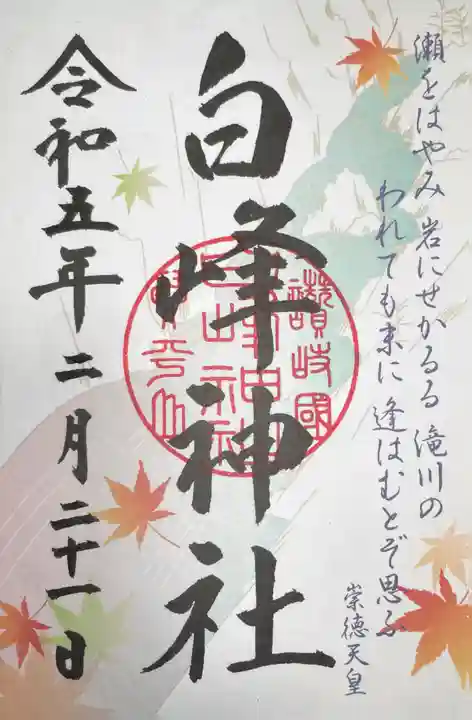 瀬をはやみ 岩にせかるる 滝川の
われても末に 逢はむとぞ思ふ
崇徳天皇
白峰神社
讃岐國
令和五年 二月二十一日